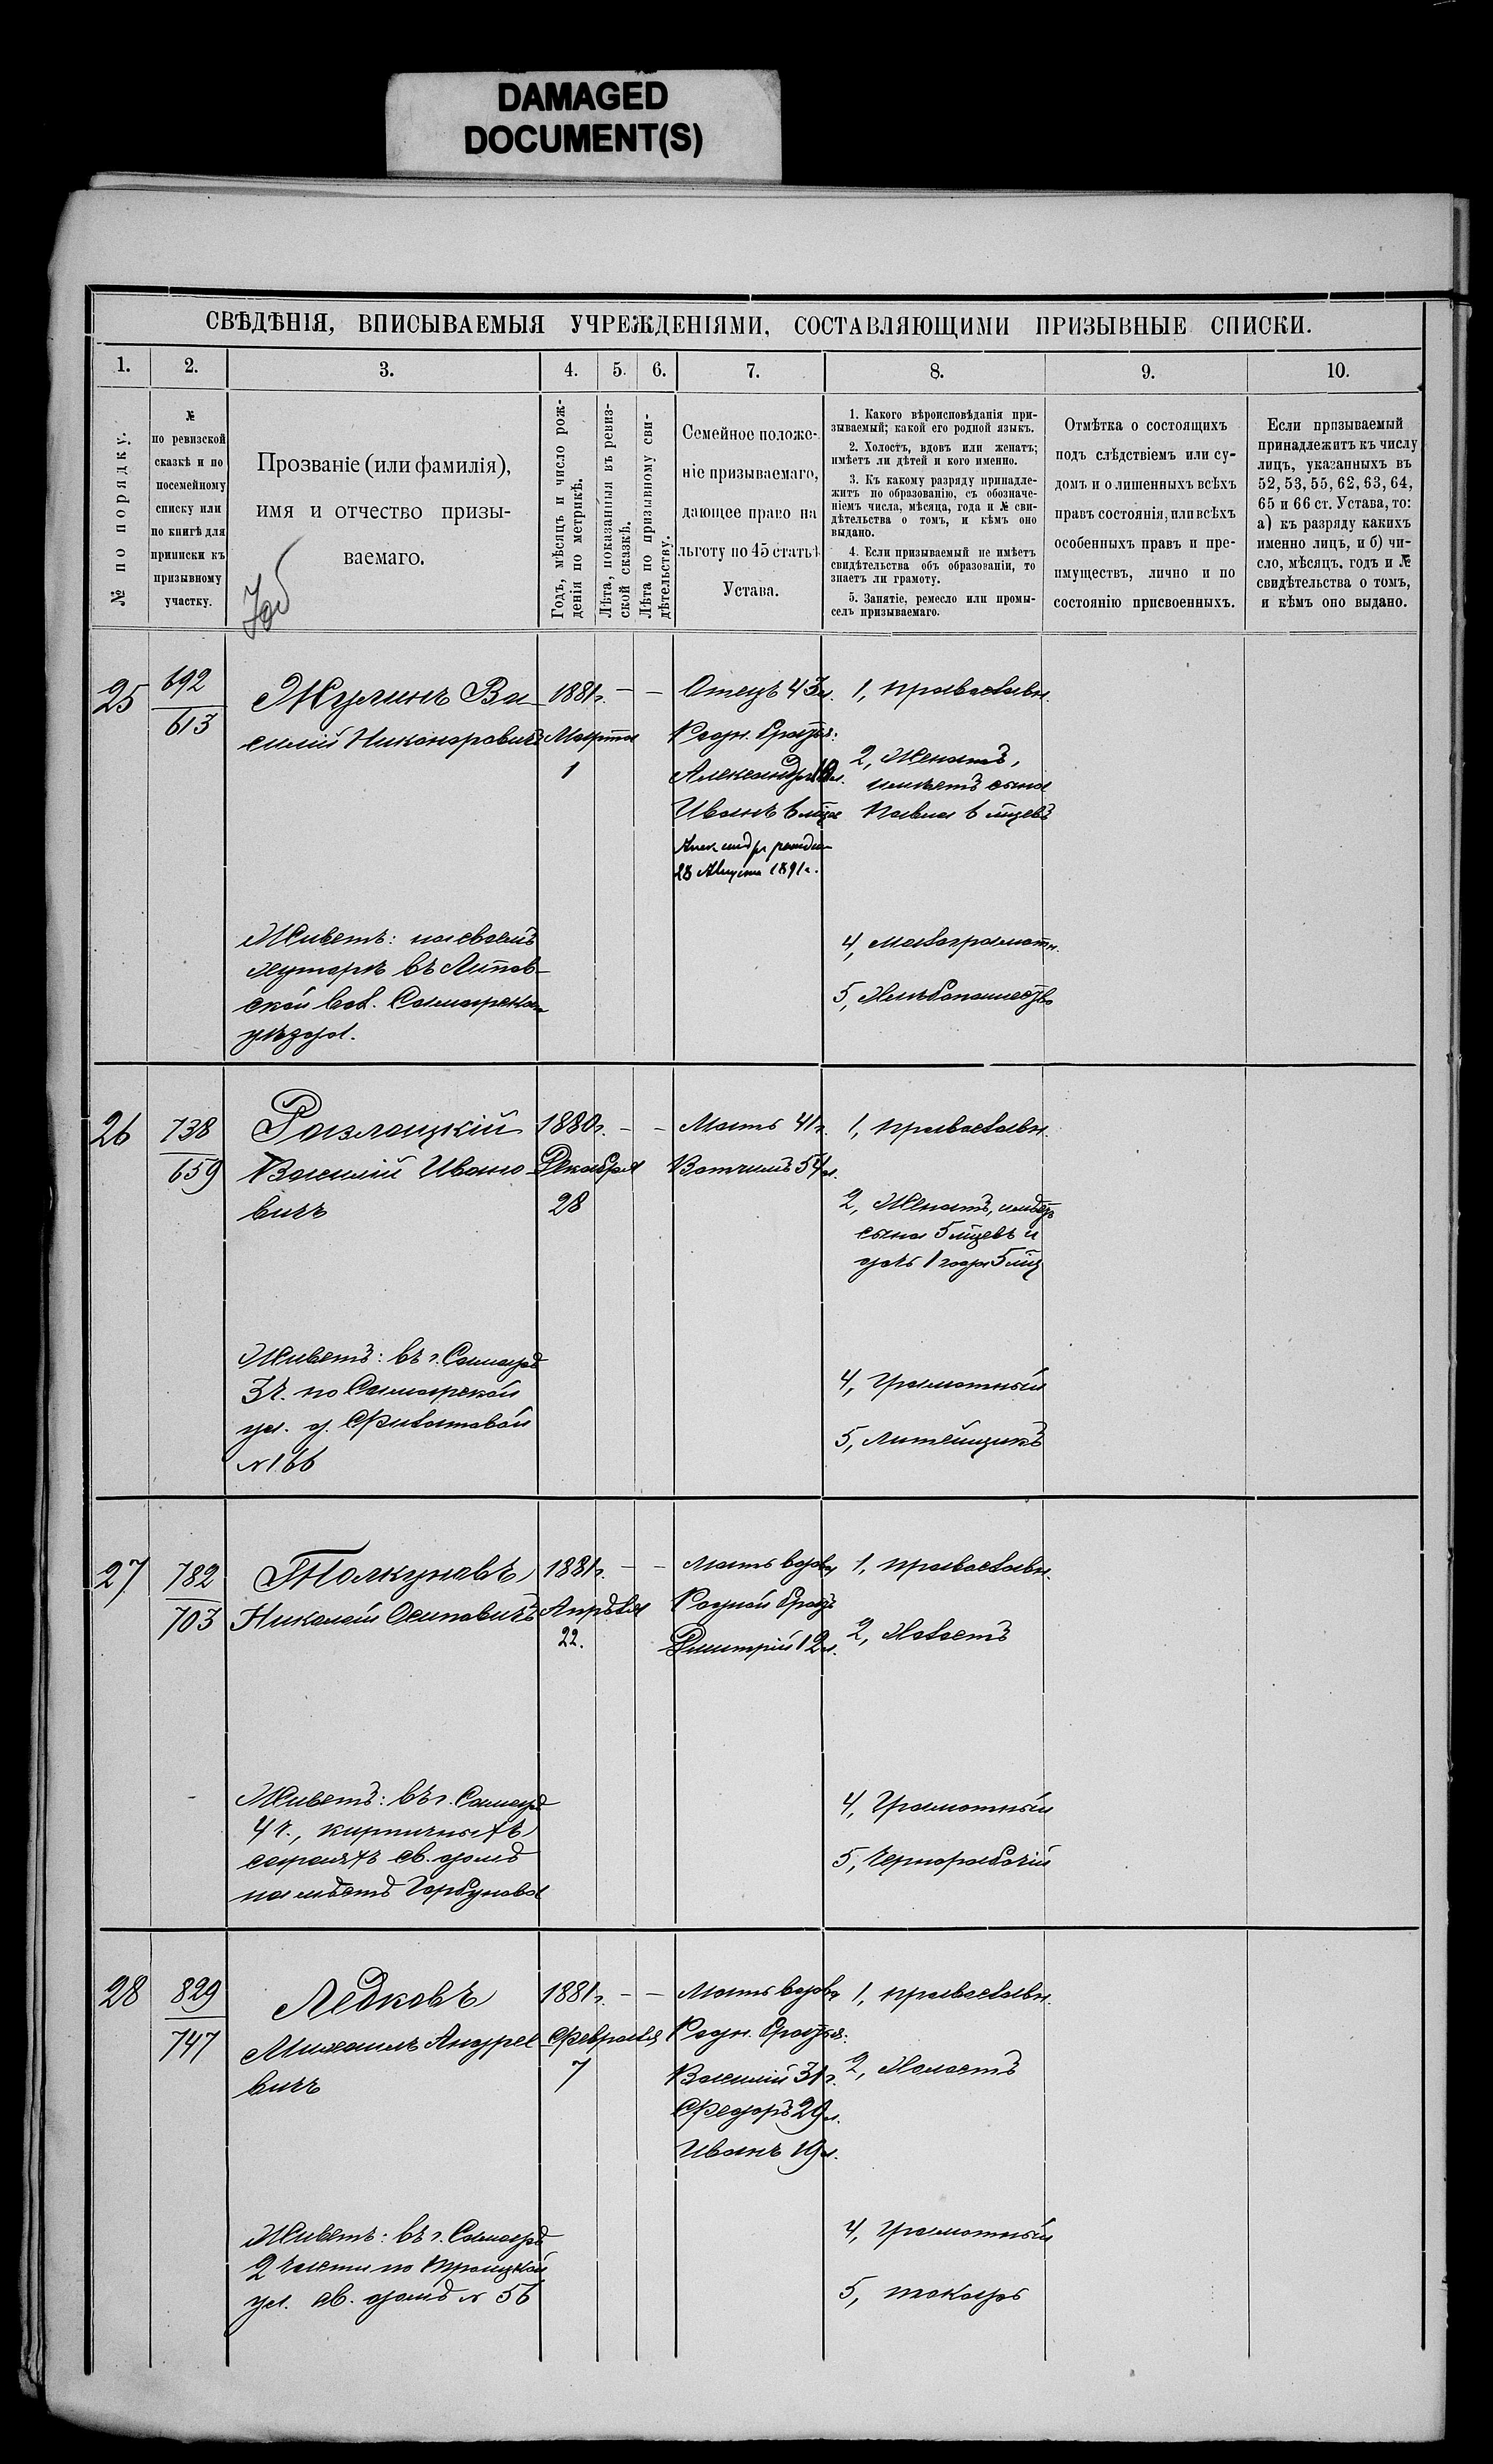 DAMAGED
DOCUMENT(S)
СВѢДѢНІЯ, ВПИСЫВАЕМЫЯ УЧРЕЖДЕНІЯМИ, СОСТАВЛЯЮЩИМИ ПРИЗЫВНЫЕ СПИСКИ.
1. 2. 3. 4. 5. 6. 7. 8. 9. 10.
№ по порядку.
№
по ревизской
сказкѣ и по
посемейному
списку или
по книгѣ для
приписки къ
призывному
участку.
Прозваніе (или фамилія),
имя и отчество призы-
ваемаго.
Годъ, мѣсяцъ и число рож-
денія по метрикѣ.
Лѣта, показанныя въ ревиз-
ской сказкѣ.
Лѣта по призывному сви-
дѣтельству.
Семейное положе-
ніе призываемаго,
дающее право на
льготу по 45 статьѣ
Устава.
1. Какого вѣроисповѣданія при-
зываемый; какой его родной языкъ.
2. Холостъ, вдовъ или женатъ;
имѣетъ ли дѣтей и кого именно.
3. Къ какому разряду принадле-
житъ по образованію, съ обозначе-
ніемъ числа, мѣсяца, года и № сви-
дѣтельства о томъ, и кѣмъ оно
выдано.
4. Если призываемый не имѣетъ
свидѣтельства объ образованіи, то
знаетъ ли грамоту.
5. Занятіе, ремесло или промы-
селъ призываемаго.
Отмѣтка о состоящихъ
подъ слѣдствіемъ или су-
домъ и о лишенныхъ всѣхъ
правъ состоянія, или всѣхъ
особенныхъ правъ и пре-
имуществъ, лично и по
состоянію присвоенныхъ.
Если призываемый
принадлежитъ къ числу
лицъ, указанныхъ въ
52, 53, 55, 62, 63, 64,
65 и 66 ст. Устава, то:
а) къ разряду какихъ
именно лицъ, и б) чи-
сло, мѣсяцъ, годъ и №
свидѣтельства о томъ,
и кѣмъ оно выдано.
25
692
613
Жулинъ Ва-
силій Никоноровичъ
1881г.
Марта
1
— —
Отецъ 43л.
Родн. братья:
Александръ 10л.
Иванъ 6 мѣца
Александръ рожден
28 Августа 1891г.
1, православн.
2, Женатъ,
имѣетъ сына
Павла 6 мѣцевъ
Живетъ: на своемъ
хуторѣ въ Липов-
ской вол. Самарскаго
уѣзда.
4, малограмотн.
5, Хлѣбопашество
26
738
659
Разлацкій
Василій Ивано-
вичъ
1880г.
Декабря
28
— —
Мать 41г.
Вотчимъ 54л.
1, православн.
2, Женатъ, имѣетъ
сына 5 мѣцевъ и
дочь 1 года 5 мѣц
Живетъ: въ г. Самарѣ
3 ч. по Самарской
ул. д. Филатовой
№ 166
4, Грамотный
5, Литейщикъ
27
782
703
Толкуновъ
Николай Осиповичъ
1881г.
Апрѣля
22.
— —
Мать вдова
Родной братъ
Дмитрій 12л.
1, православн.
2, Холостъ
Живетъ: въ г. Самарѣ
4 ч., кирпичныхъ
сараяхъ св. домъ
на мѣстѣ Горбунова
4, Грамотный
5, Чернорабочій
28
829
747
Ледковъ
Михаилъ Андрее-
вичъ
1881г.
Февраля
7
— —
Мать вдова
Родн. братья:
Василій 31г.
Федоръ 29л.
Иванъ 19л.
1, православн.
2, Холостъ
Живетъ: въ г. Самарѣ
2 части по Троицкой
ул. св. домъ № 56
4, Грамотный
5, токарь